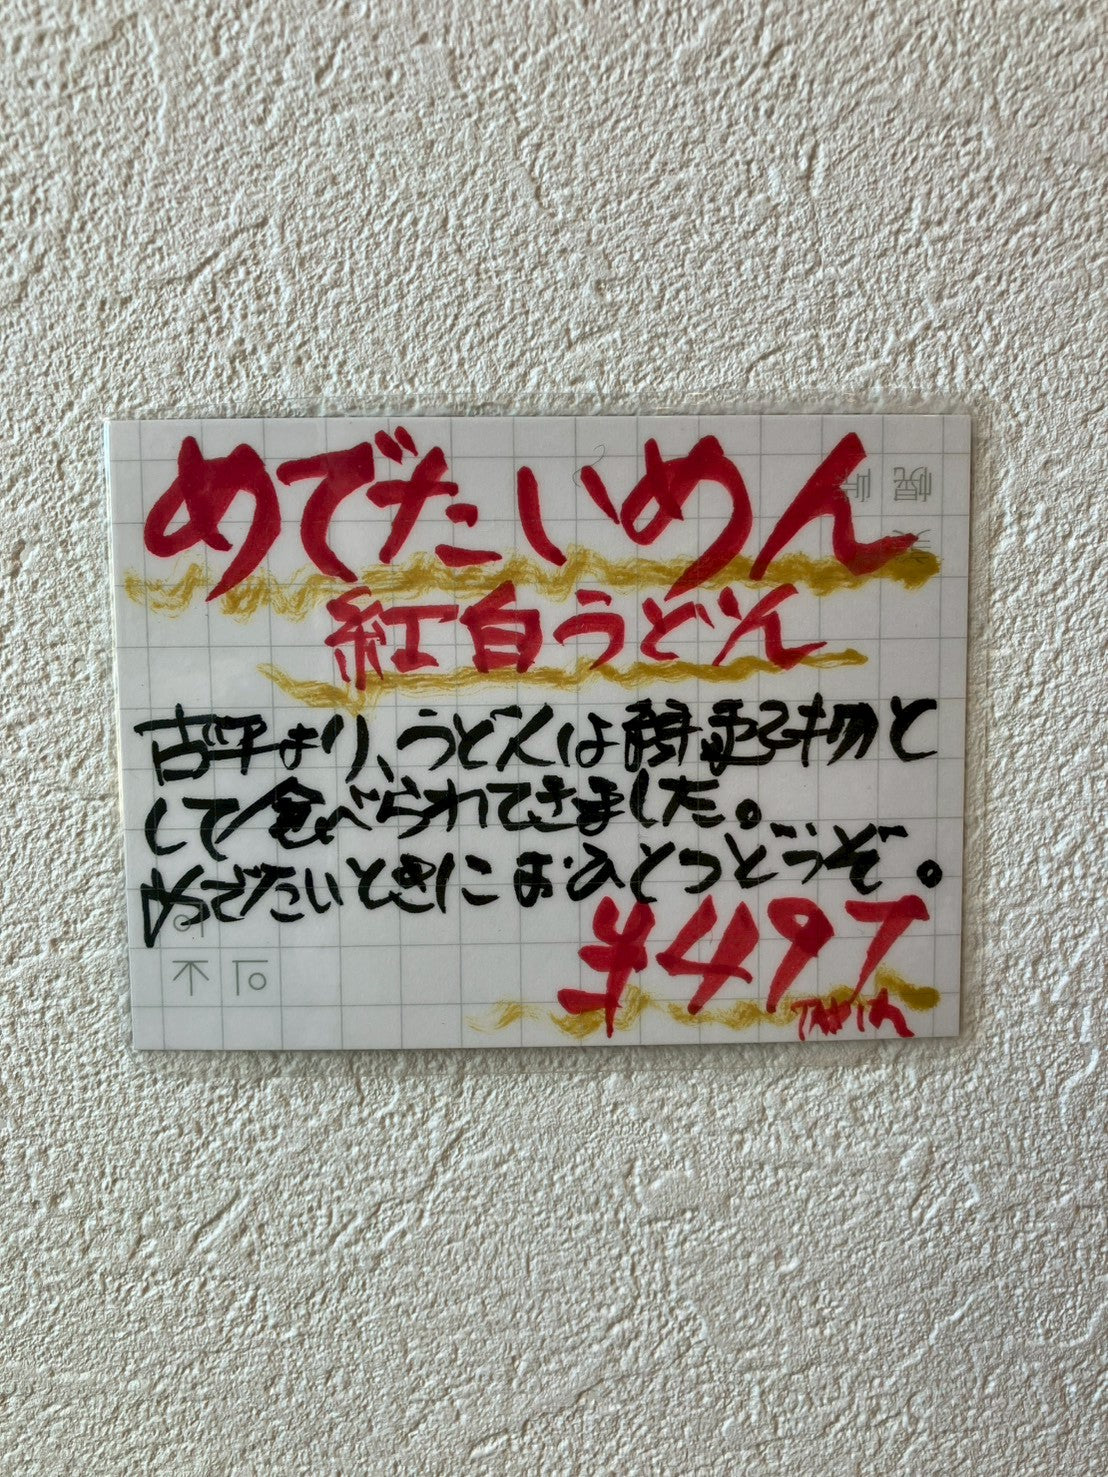 めでたいめん
紅白うどん
古来より、うどんは縁起物と
して食べられてきました。
めでたいときにおひとつどうぞ。
¥497